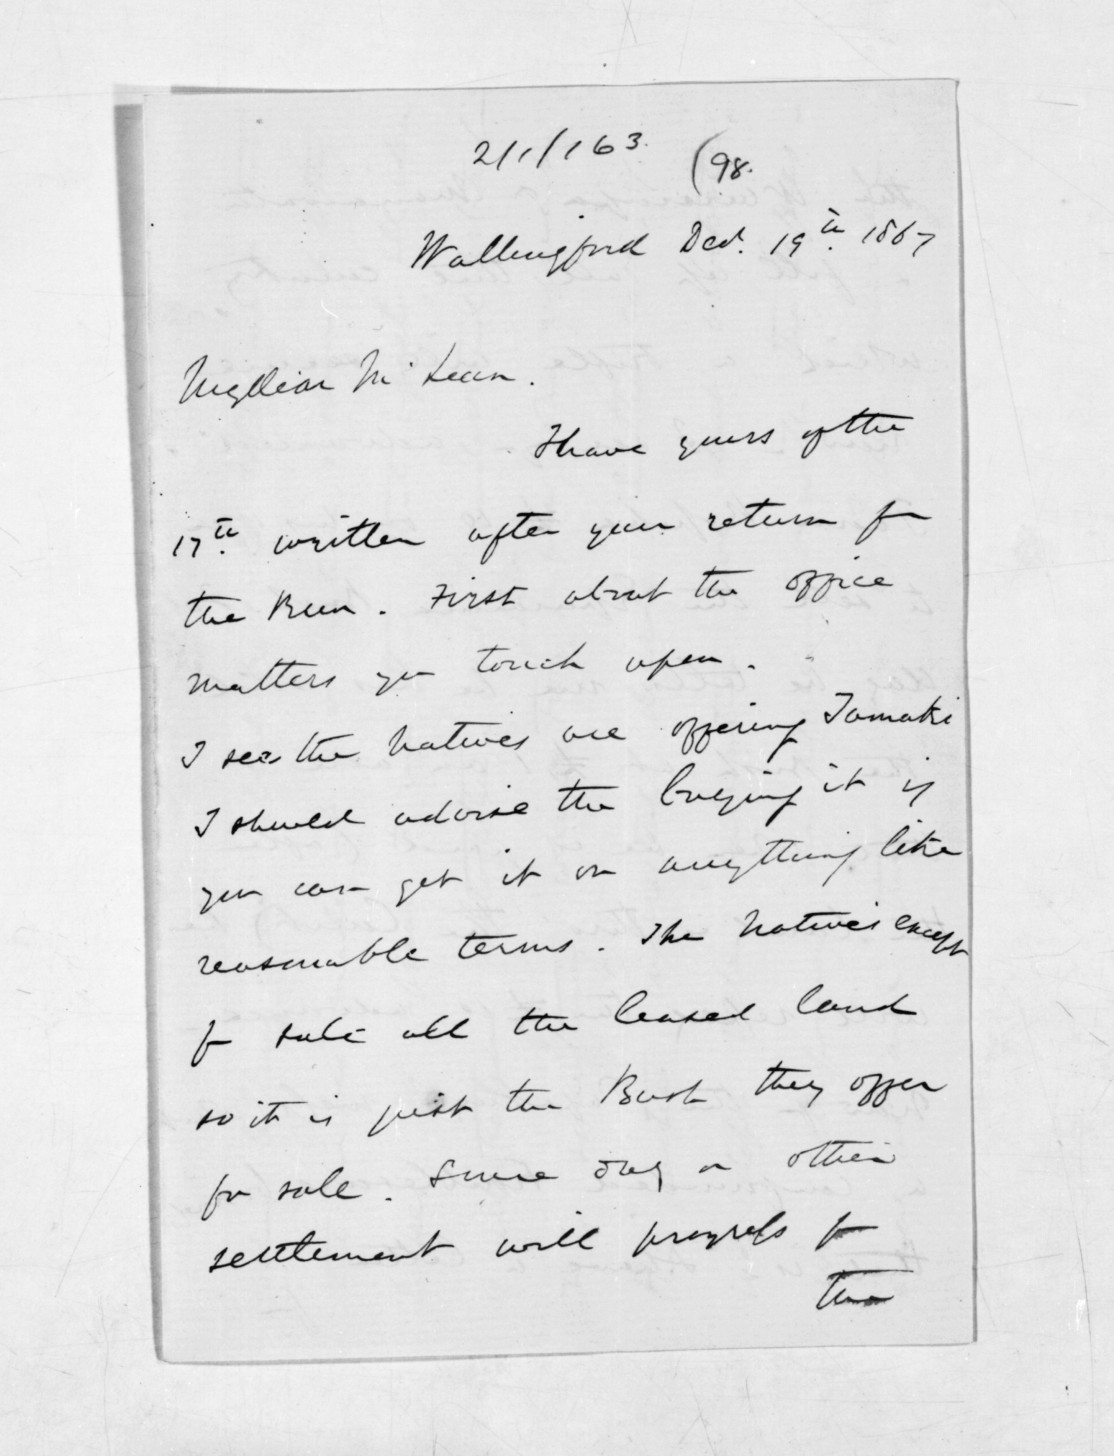 2/1/163.
(98.
Wallingford Decr. 19th. 1867
My dear McLean.
I have yours of the
17th. written after your return from
the Run. First about the office
matters you touch upon.
I see the Natives are offering Tamaki
I should advise the buying it if
you can get it on anything like
reasonable terms. The Natives except
for sale all the leased land
so it is just the Bush they offer
for sale. Some day or other
settlement will progress from
the